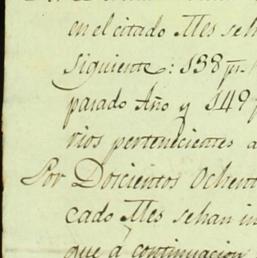 en el citado Mes se ha
siguiente: 138 ps.
parado Año y 149
rios pertenecientes a
Por Doscientos Ochent
cado Mes se han in
que à continuacion